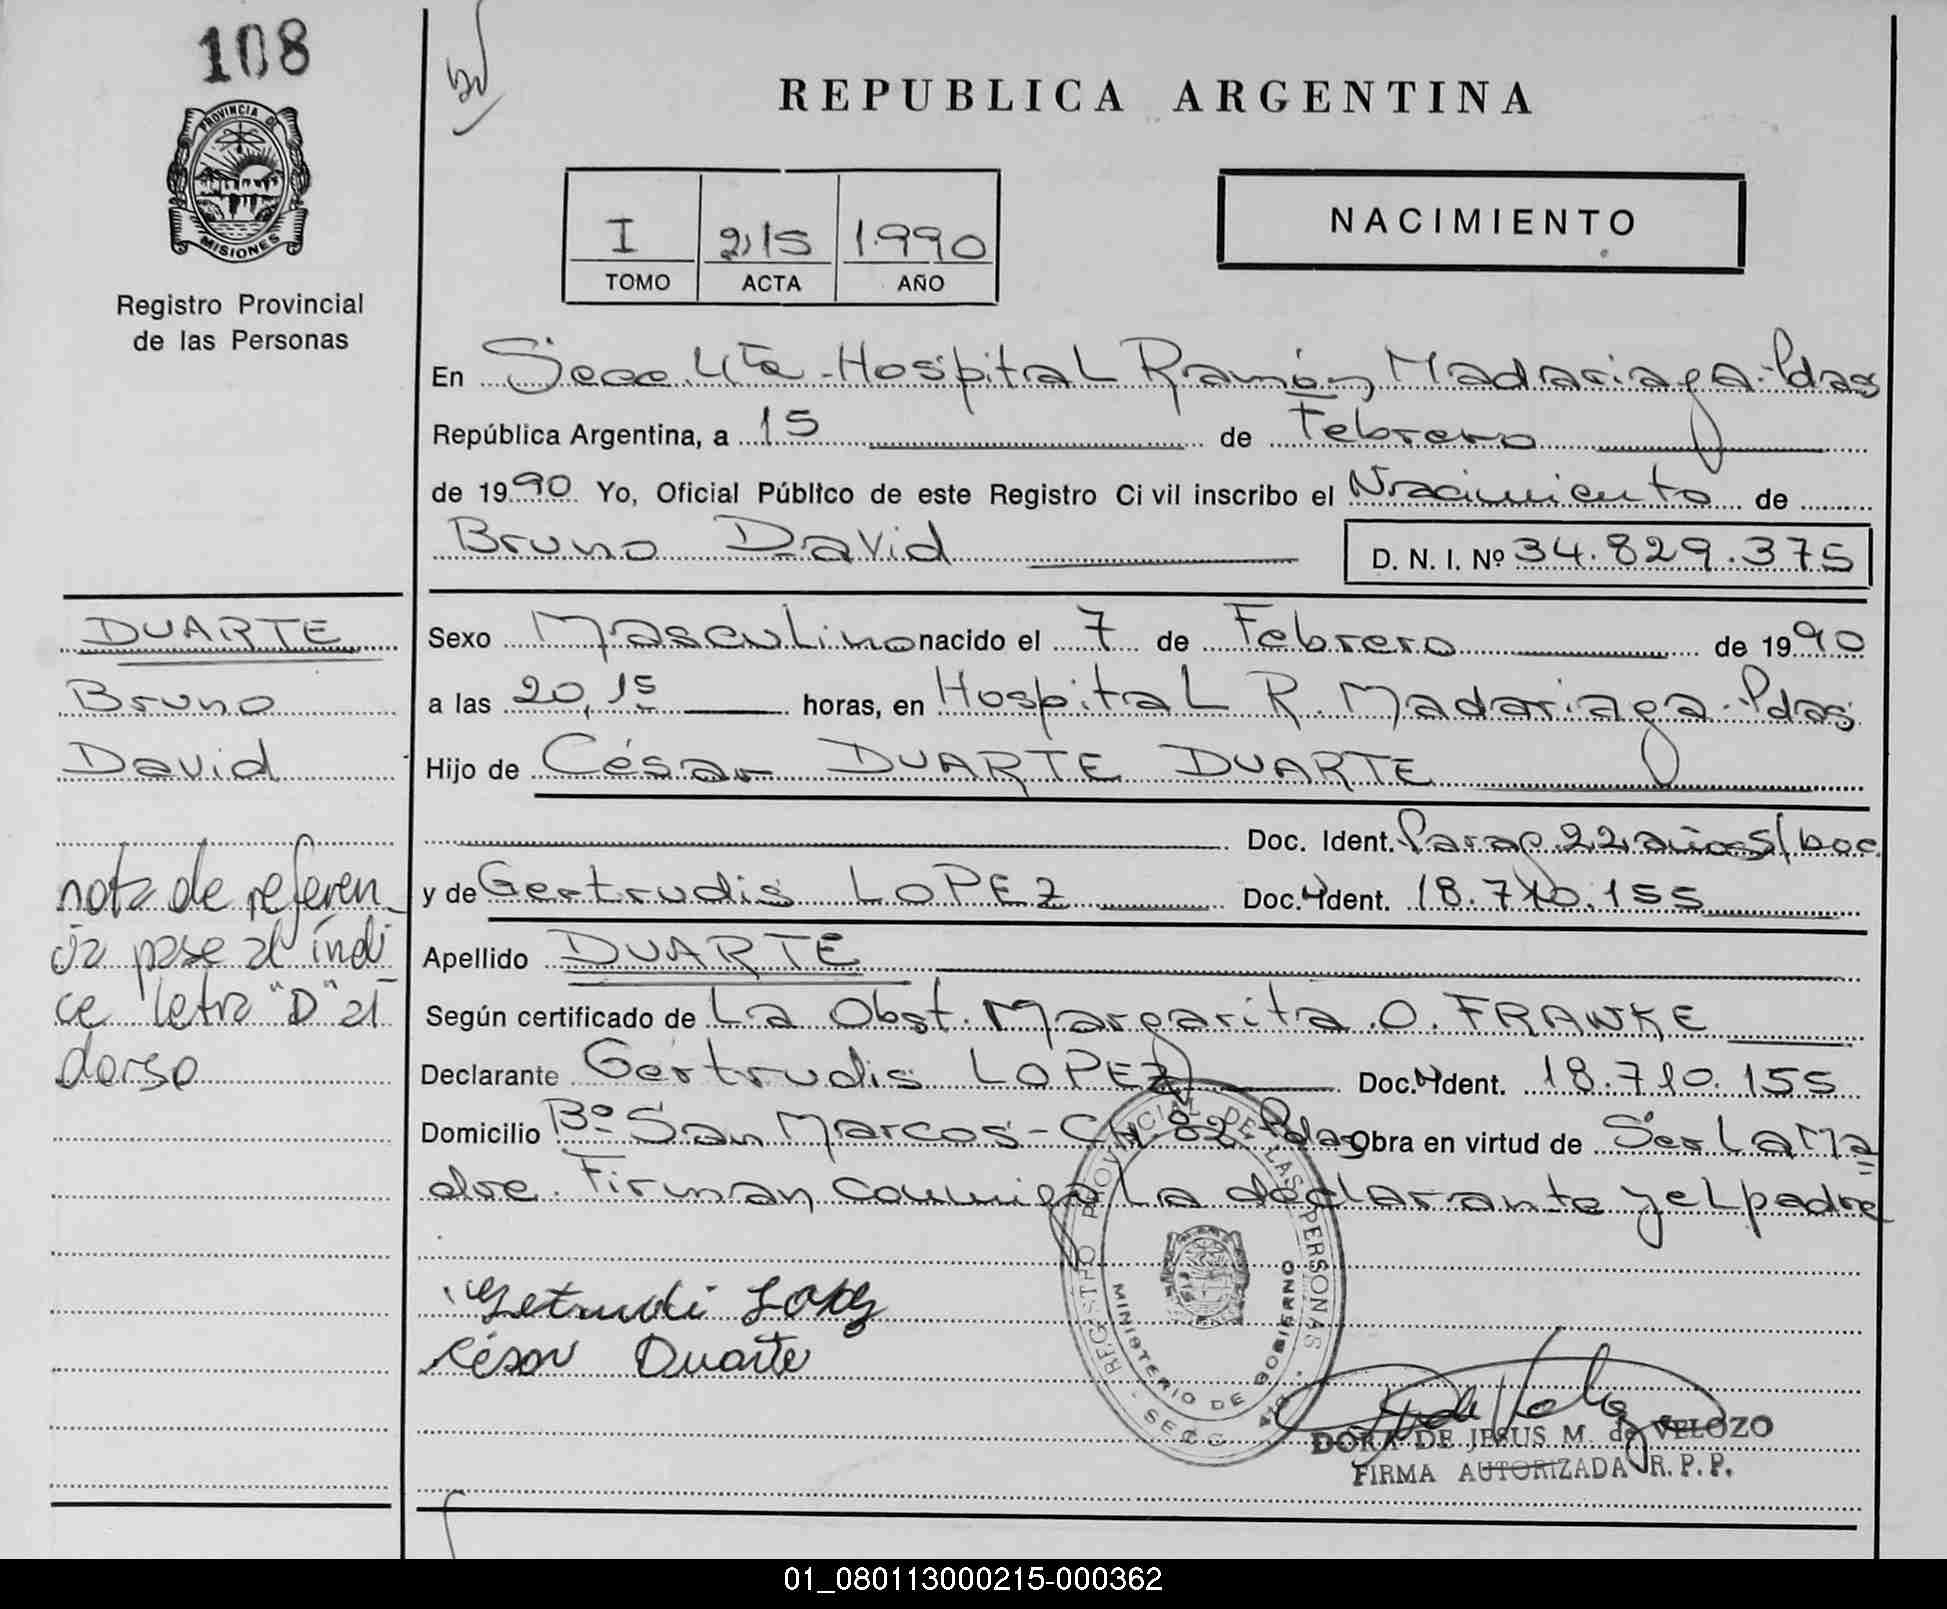 108
PROVINCIA DE
MISIONES
Registro Provincial
de las Personas
REPUBLICA ARGENTINA
I 215 1.990
TOMO ACTA AÑO
NACIMIENTO
En Secc. 4ta - Hospital Ramón Madariaga - Pdas
República Argentina, a 15 de Febrero
de 1990 Yo, Oficial Público de este Registro Civil inscribo el Nacimiento de
Bruno David D. N. I. Nº 34.829.375
Sexo Masculino nacido el 7 de Febrero de 1990
a las 20,15 horas, en Hospital R. Madariaga - Pdas
Hijo de César DUARTE DUARTE
Doc. Ident. Parag. 22 años S/Doc.
y de Gertrudis LOPEZ Doc. Ident. 18.710.155
Apellido DUARTE
Según certificado de La Obst. Margarita O. FRANKE
Declarante Gertrudis LOPEZ Doc. Ident. 18.710.155
Domicilio Bº San Marcos - CH 82 Pdas Obra en virtud de Ser La Ma
dre. Firman conmigo La declarante y el padre
DUARTE
Bruno
David
nota de referen-
cia pase al índi
ce letra "D" al
dorso
Getrudi Lopez
César Duarte
REGISTRO PROVINCIAL DE LAS PERSONAS
MINISTERIO DE GOBIERNO
SECC 4ta
DORA DE JESUS M. de VELOZO
FIRMA AUTORIZADA R. P. P.
01_080113000215-000362